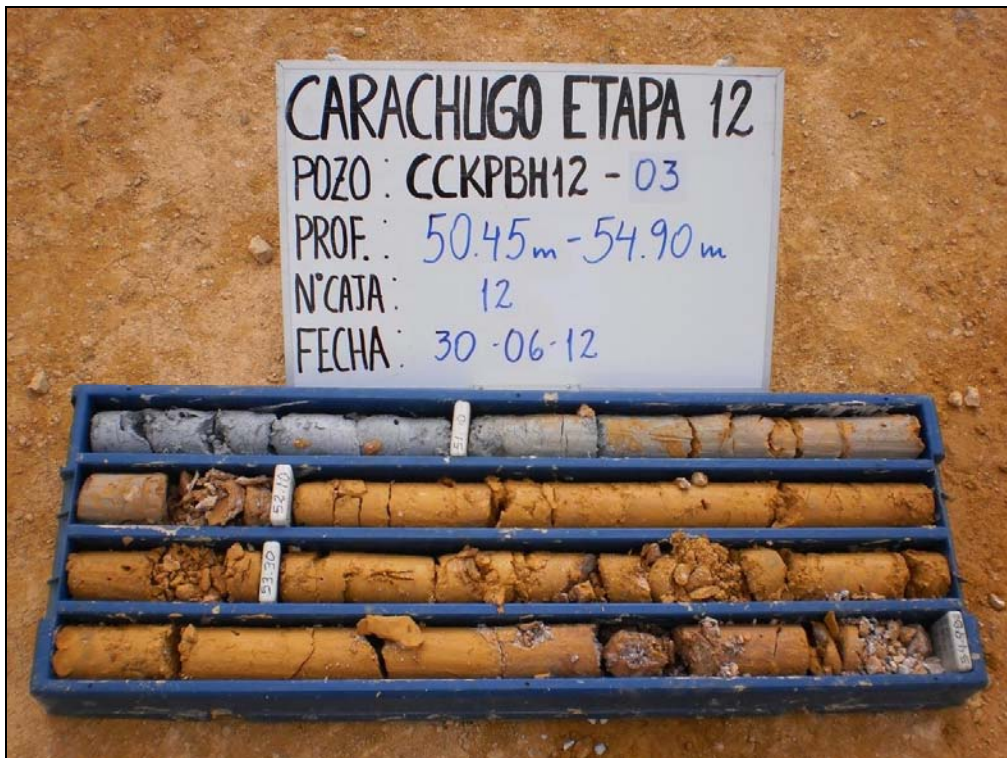 CARACHUGO ETAPA 12
POZO : CCKPBH12 - 03
PROF. : 50.45m - 54.90m
N° CAJA : 12
FECHA : 30-06-12
51.0
52.10
53.30
54.90